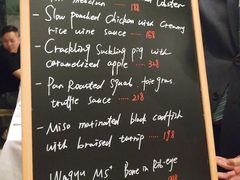 Slow poached chicken with creamy
rice wine sauce .... 168
- Crackling Suckling pig with
caramelized apple .... 328
- Pan Roasted Squab, foie gras,
truffle sauce .... 218
- Miso marinated black codfish
with braised turnip .... 198
Wagyu M5+ Bone in Rib-eye